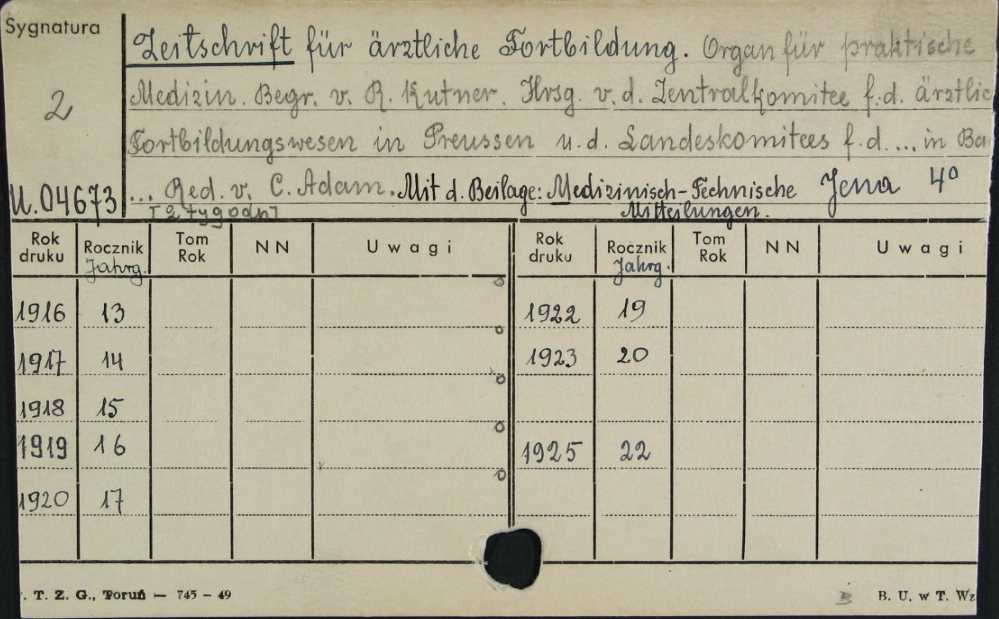 Sygnatura
Zeitschrift für ärztliche Fortbildung. Organ für praktische
2
Medizin. Begr. v. R. Kutner. Hrsg. v. d. Zentralkomitee f. d. ärztlic
Fortbildungswesen in Preussen u. d. Landeskomitees f. d. ... in Ba
U.04673 ... Red. v. C. Adam. Mit d. Beilage: Medizinisch-Technische Jena 4°
[2 tygodn] Mitteilungen.
Rok druku Rocznik Tom Rok NN Uwagi Rok druku Rocznik Tom Rok NN Uwagi
Jahrg. Jahrg.
1916 13 1922 19
1917 14 1923 20
1918 15
1919 16 1925 22
1920 17
. T. Z. G., Toruń — 745 – 49 B. U. w T. Wz